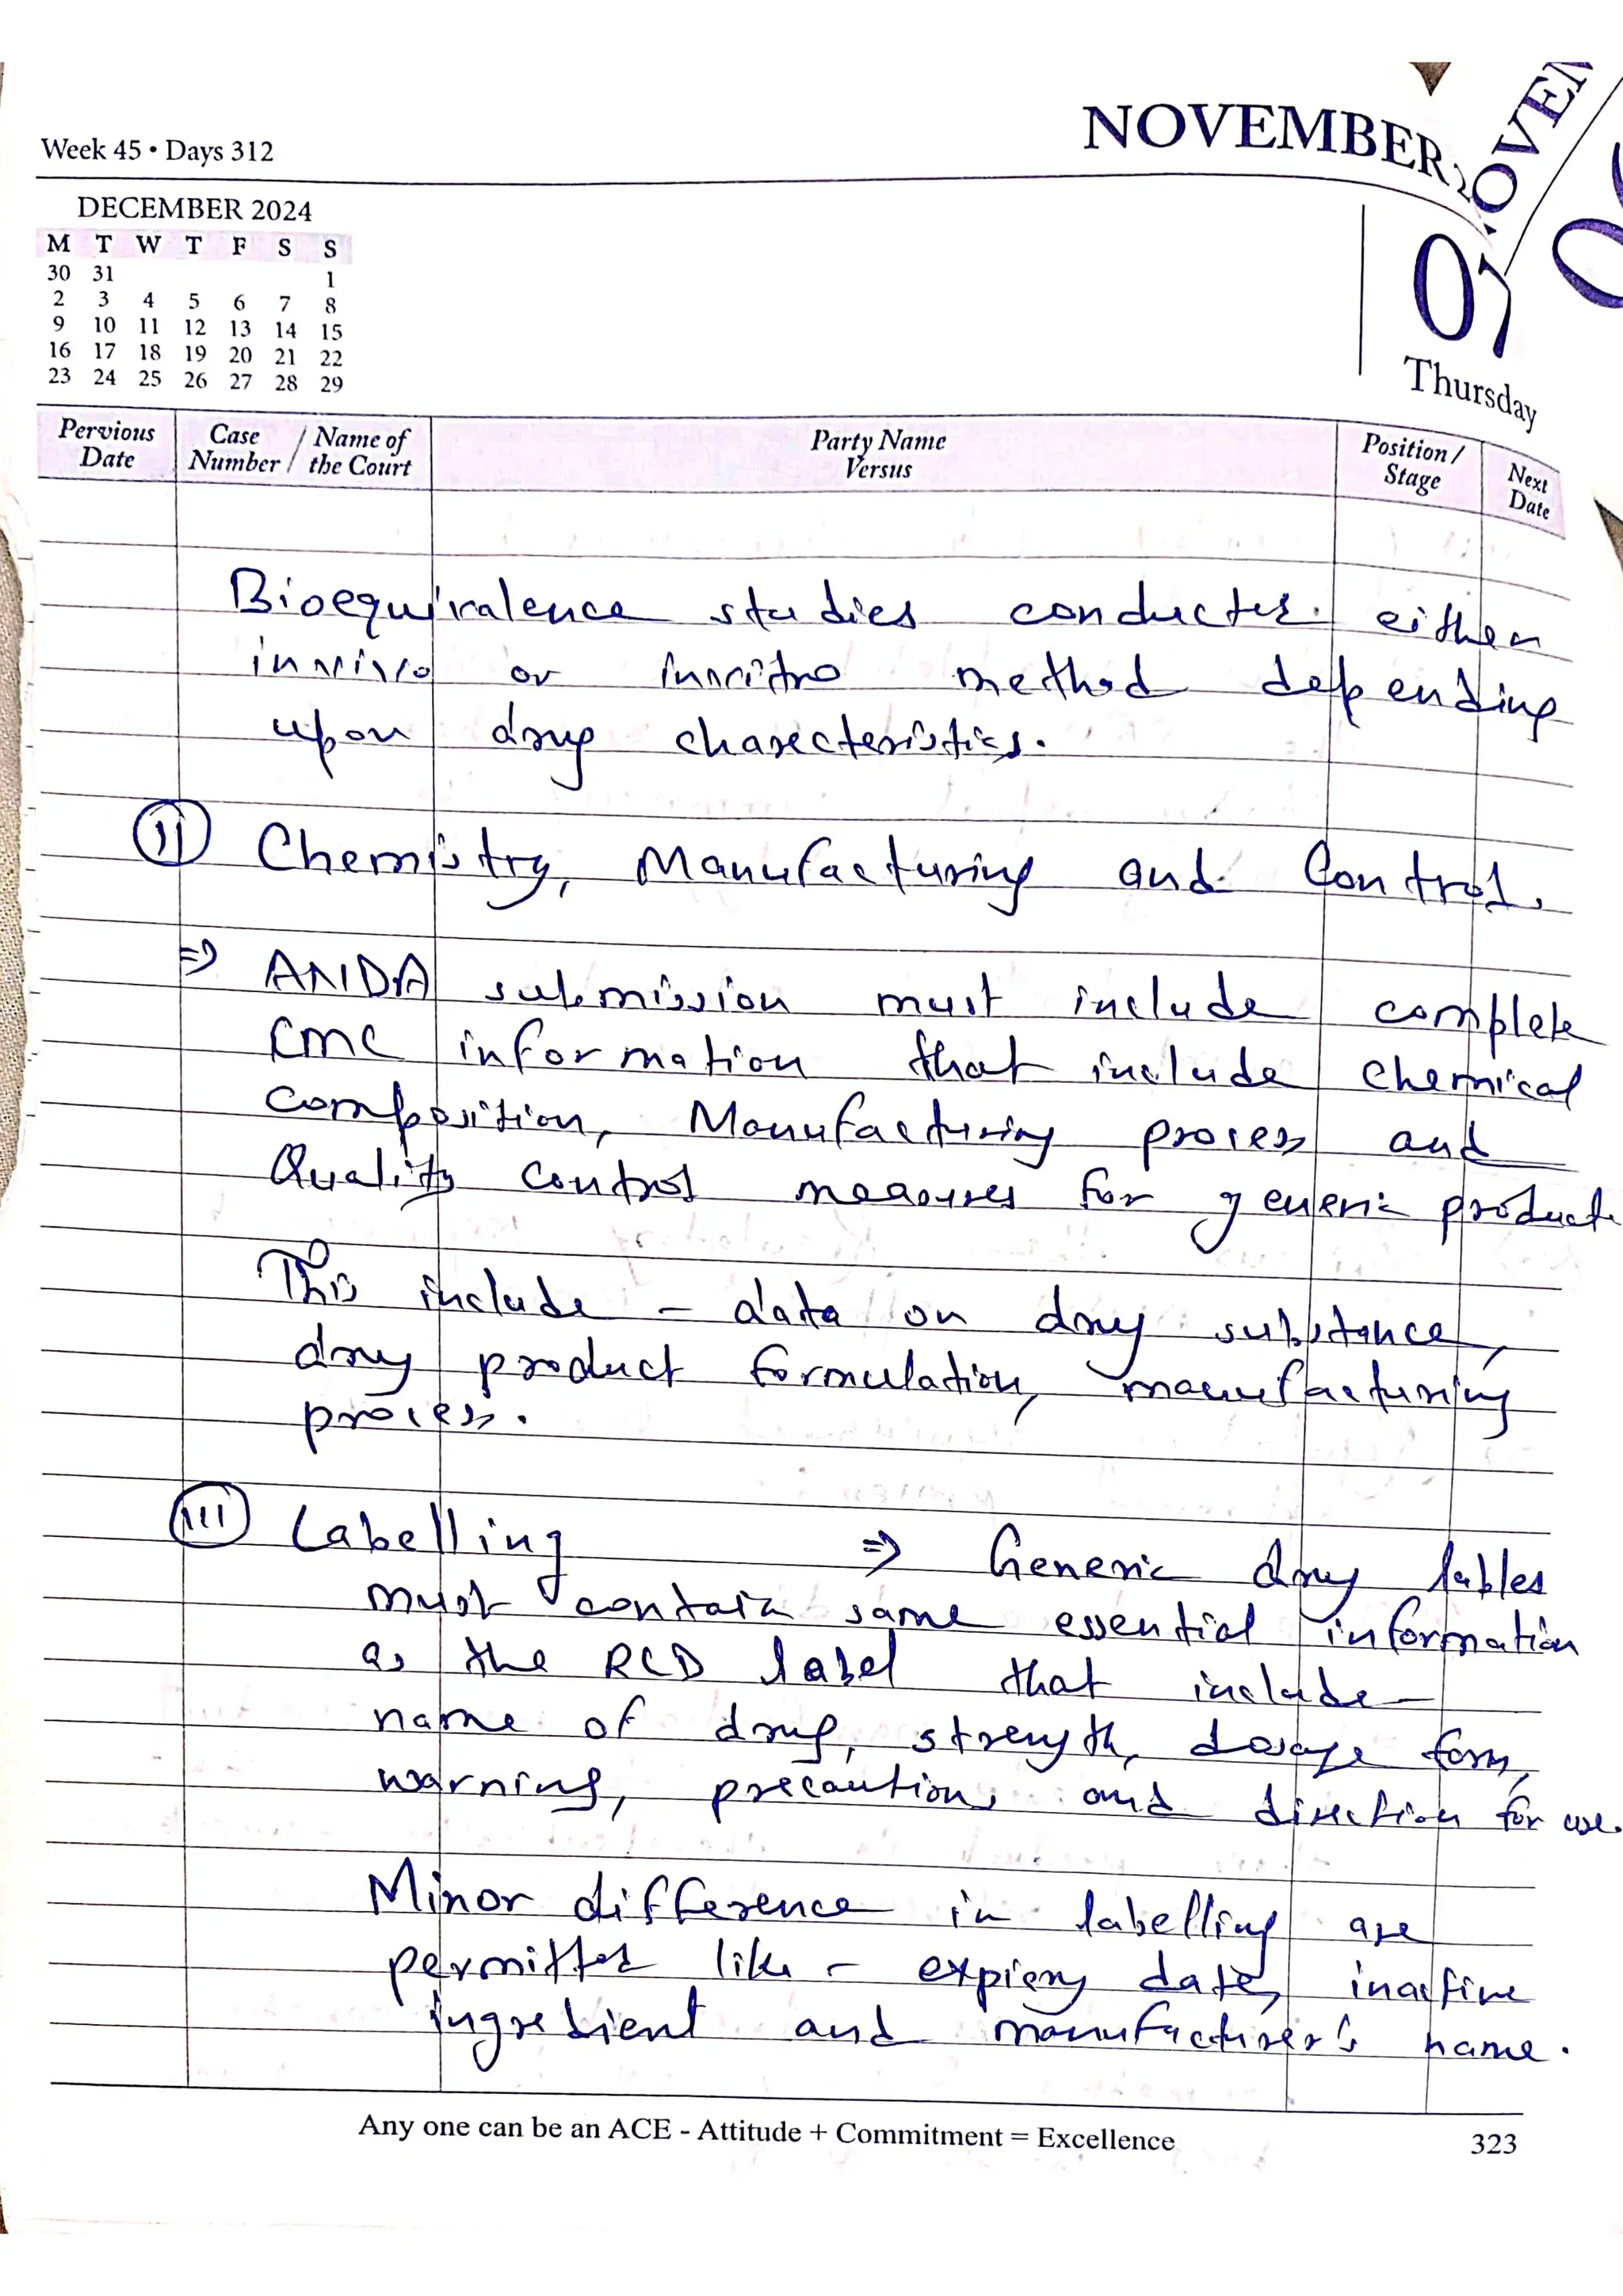 Week 45 • Days 312
NOVEMBER
NOVEM
DECEMBER 2024
M T W T F S S
30 31 1
2 3 4 5 6 7 8
9 10 11 12 13 14 15
16 17 18 19 20 21 22
23 24 25 26 27 28 29
07
Thursday
Pervious Date
Case Number / Name of the Court
Party Name Versus
Position / Stage
Next Date
Bioequivalence studies conducted either
invivo or invitro method depending
upon drug charecteristics.
II Chemistry, Manufacturing and Control.
⇒ ANDA submission must include complete
CMC information that include chemical
composition, Manufacturing process and
Quality control measures for generic product.
This include - data on drug substance,
drug product formulation, manufacturing
process.
III Labelling ⇒ Generic drug lables
must contain same essential information
as the RLD label that include -
name of drug, strength, dosage form,
warning, precautions and direction for use.
Minor difference in labelling are
permitted like - expiery date, inactive
ingredient and manufacturer's name.
Any one can be an ACE - Attitude + Commitment = Excellence
323